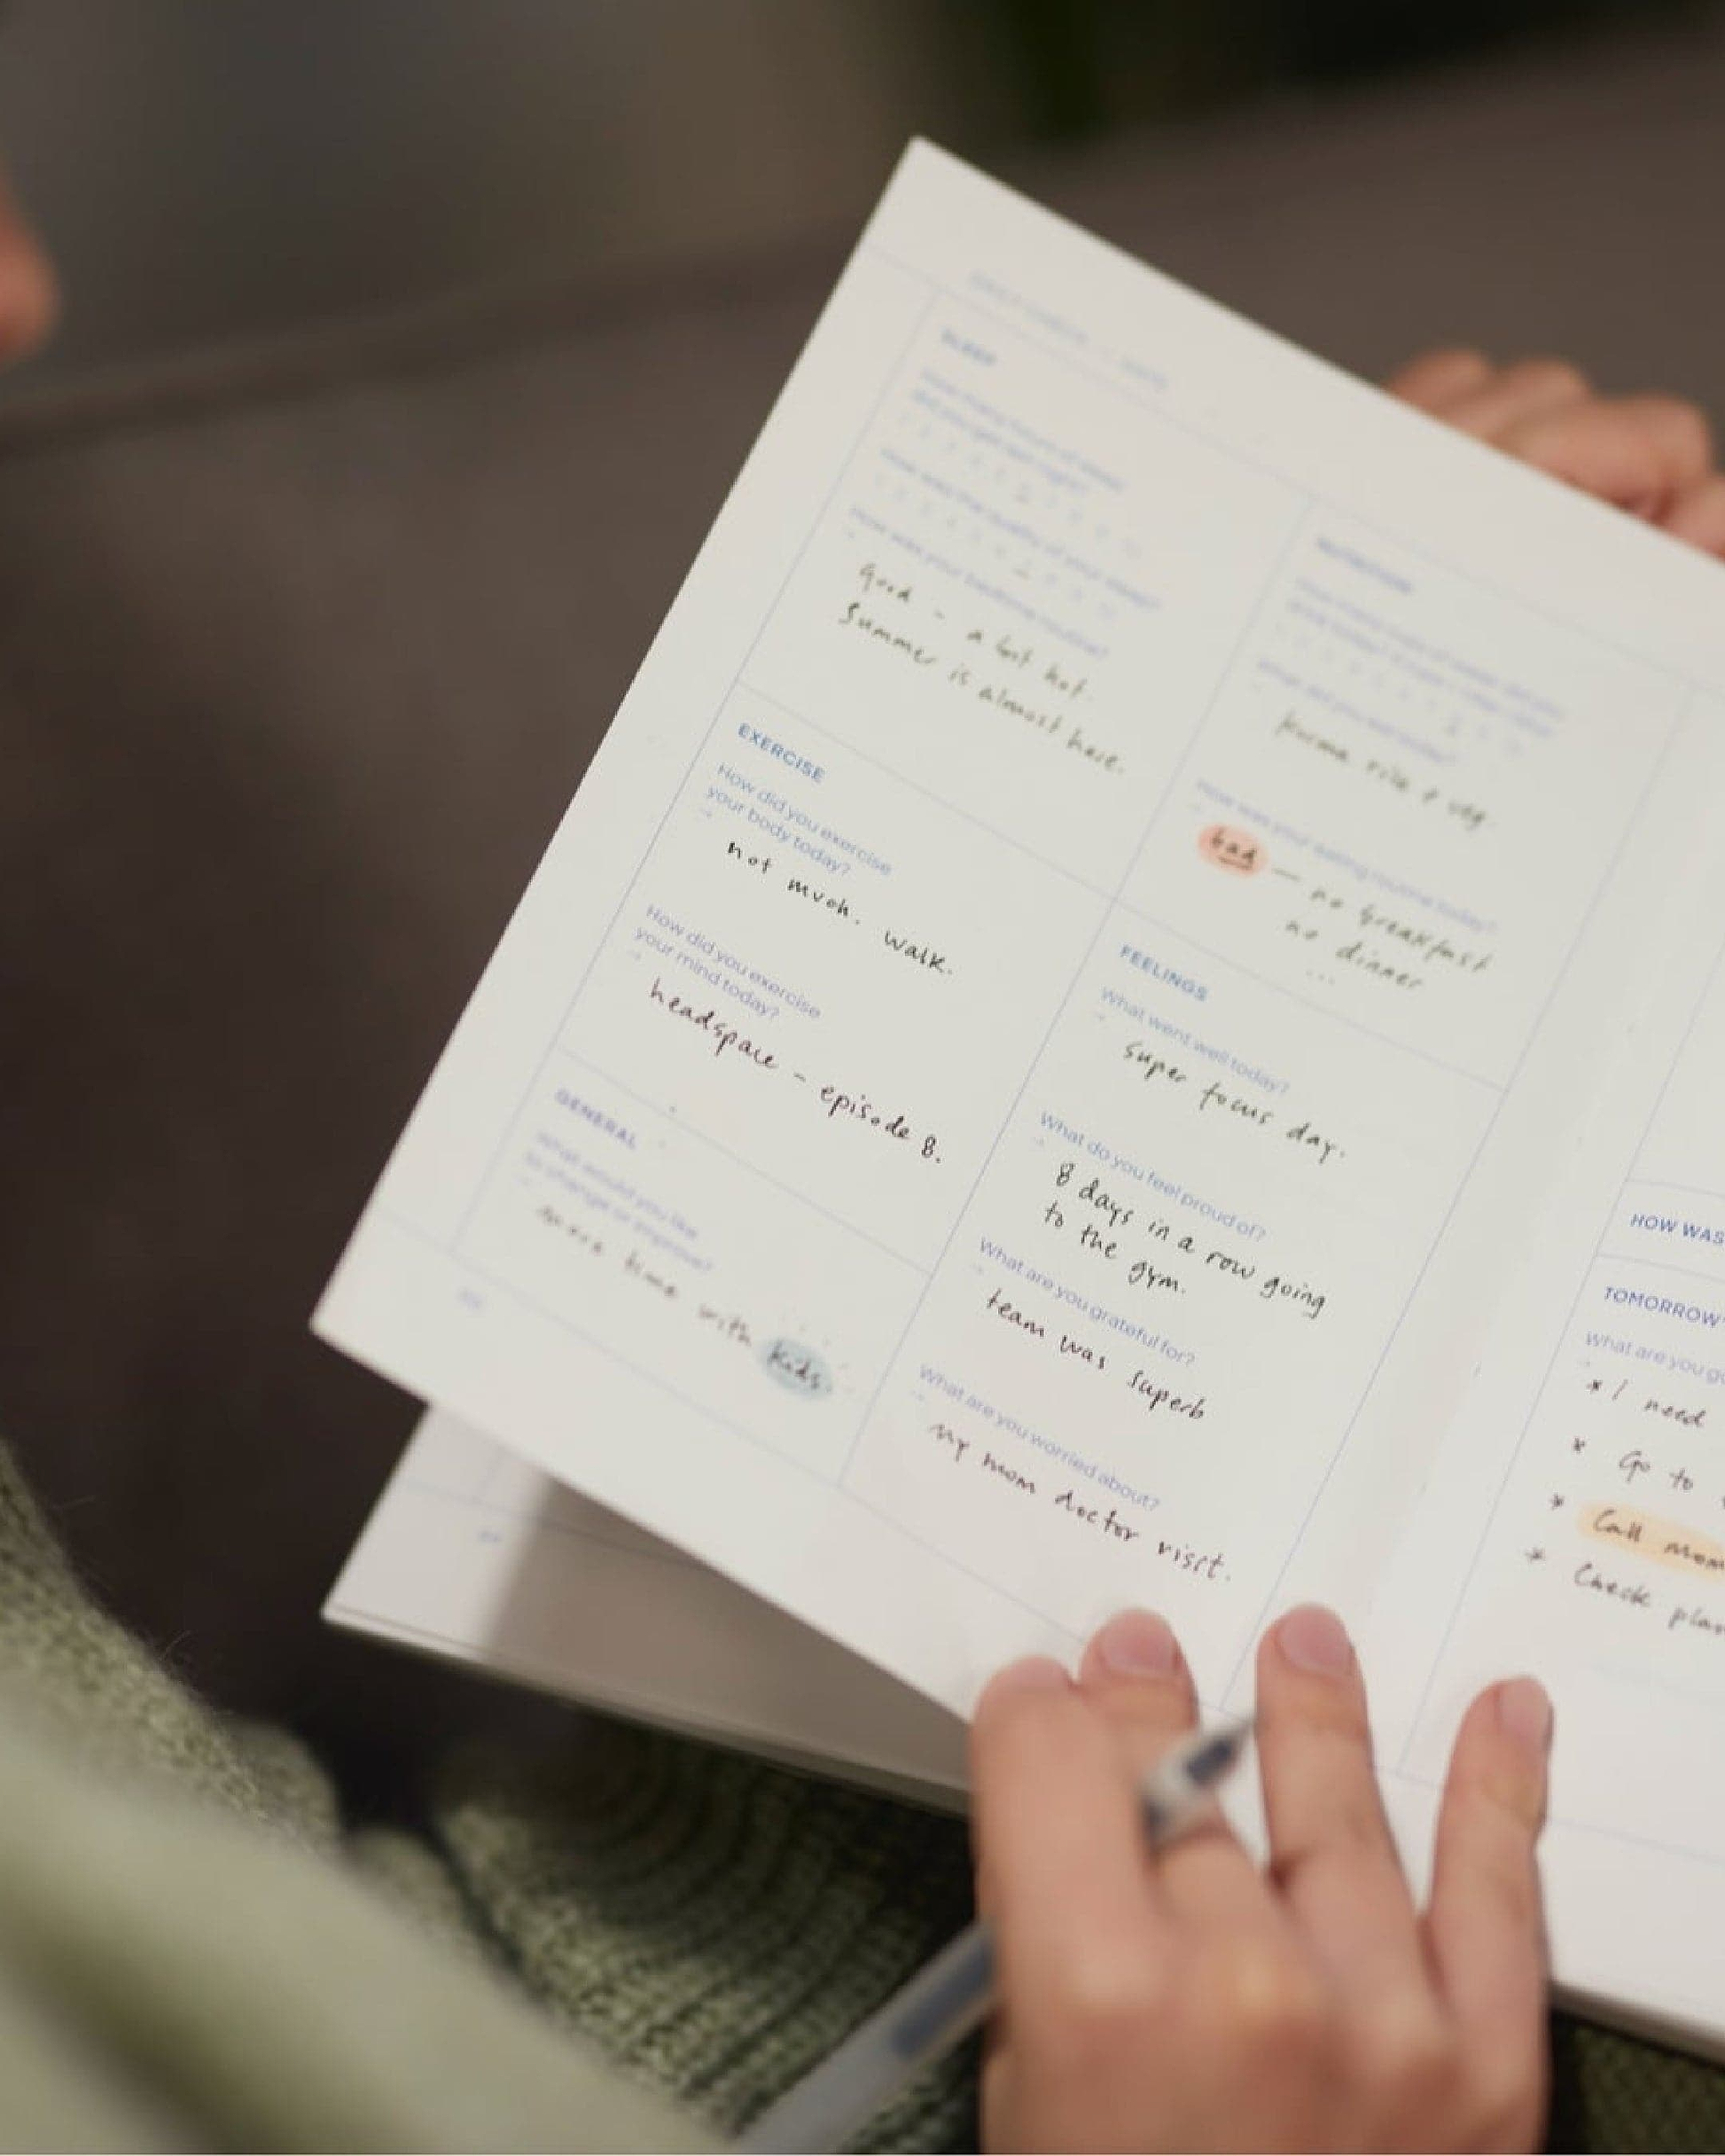 SLEEP
How many hours of sleep
did you get last night?
How was the quality of your sleep?
How was your bedtime routine?
Good - a bit hot.
Summer is almost here.
EXERCISE
How did you exercise
your body today?
→
not much. walk.
How did you exercise
your mind today?
→
headspace - episode 8.
GENERAL
What would you like
to change or improve?
more time with kids.
NUTRITION
What did you eat today?
rice + veg
How was your eating routine today?
bad — no breakfast
no dinner
...
FEELINGS
What went well today?
→
super focus day.
What do you feel proud of?
→
8 days in a row going
to the gym.
What are you grateful for?
→
team was superb
What are you worried about?
→
my mom doctor visit.
HOW WAS
TOMORROW'
What are you g
* I need
* Go to
* Call mom
* Check plan